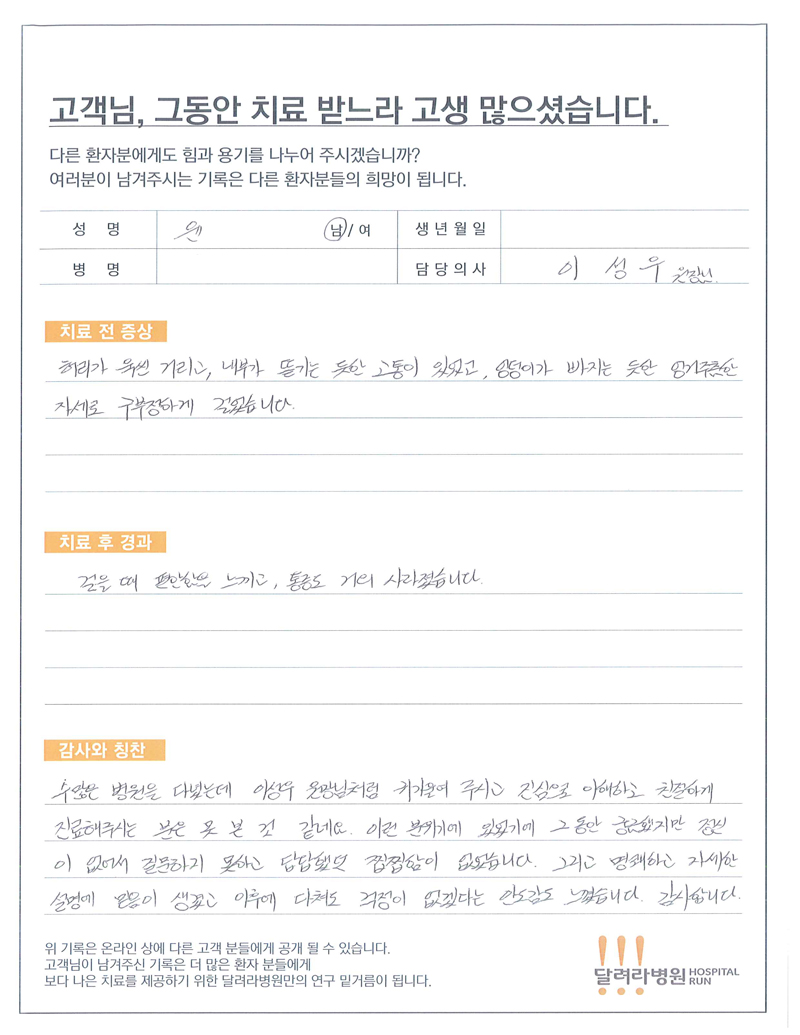 고객님, 그동안 치료 받느라 고생 많으셨습니다.
다른 환자분에게도 힘과 용기를 나누어 주시겠습니까?
여러분이 남겨주시는 기록은 다른 환자분들의 희망이 됩니다.
성 명 남 / 여 생년월일
병 명 담당의사 이 성 우 원장님.
치료 전 증상
허리가 욱씬 거리고, 내부가 뜯기는 듯한 고통이 있었고, 엉덩이가 빠지는 듯한 엉거주춤한
자세로 구부정하게 걸었습니다.
치료 후 경과
걸을 때 편안함을 느끼고, 통증도 거의 사라졌습니다.
감사와 칭찬
수많은 병원을 다녔는데 이성우 원장님처럼 귀기울여 주시고 진심으로 이해하고 친절하게
진료해주시는 분은 못 본 것 같네요. 이런 분위기에 있었기에 그동안 궁금했지만 정신
이 없어서 질문하지 못하고 답답했던 찝찝함이 없었습니다. 그리고 명쾌하고 자세한
설명에 믿음이 생겼고 이후에 다쳐도 걱정이 없겠다는 안도감도 느꼈습니다. 감사합니다.
위 기록은 온라인 상에 다른 고객 분들에게 공개 될 수 있습니다.
고객님이 남겨주신 기록은 더 많은 환자 분들에게
보다 나은 치료를 제공하기 위한 달려라병원만의 연구 밑거름이 됩니다.
!!!
달려라병원 HOSPITAL RUN